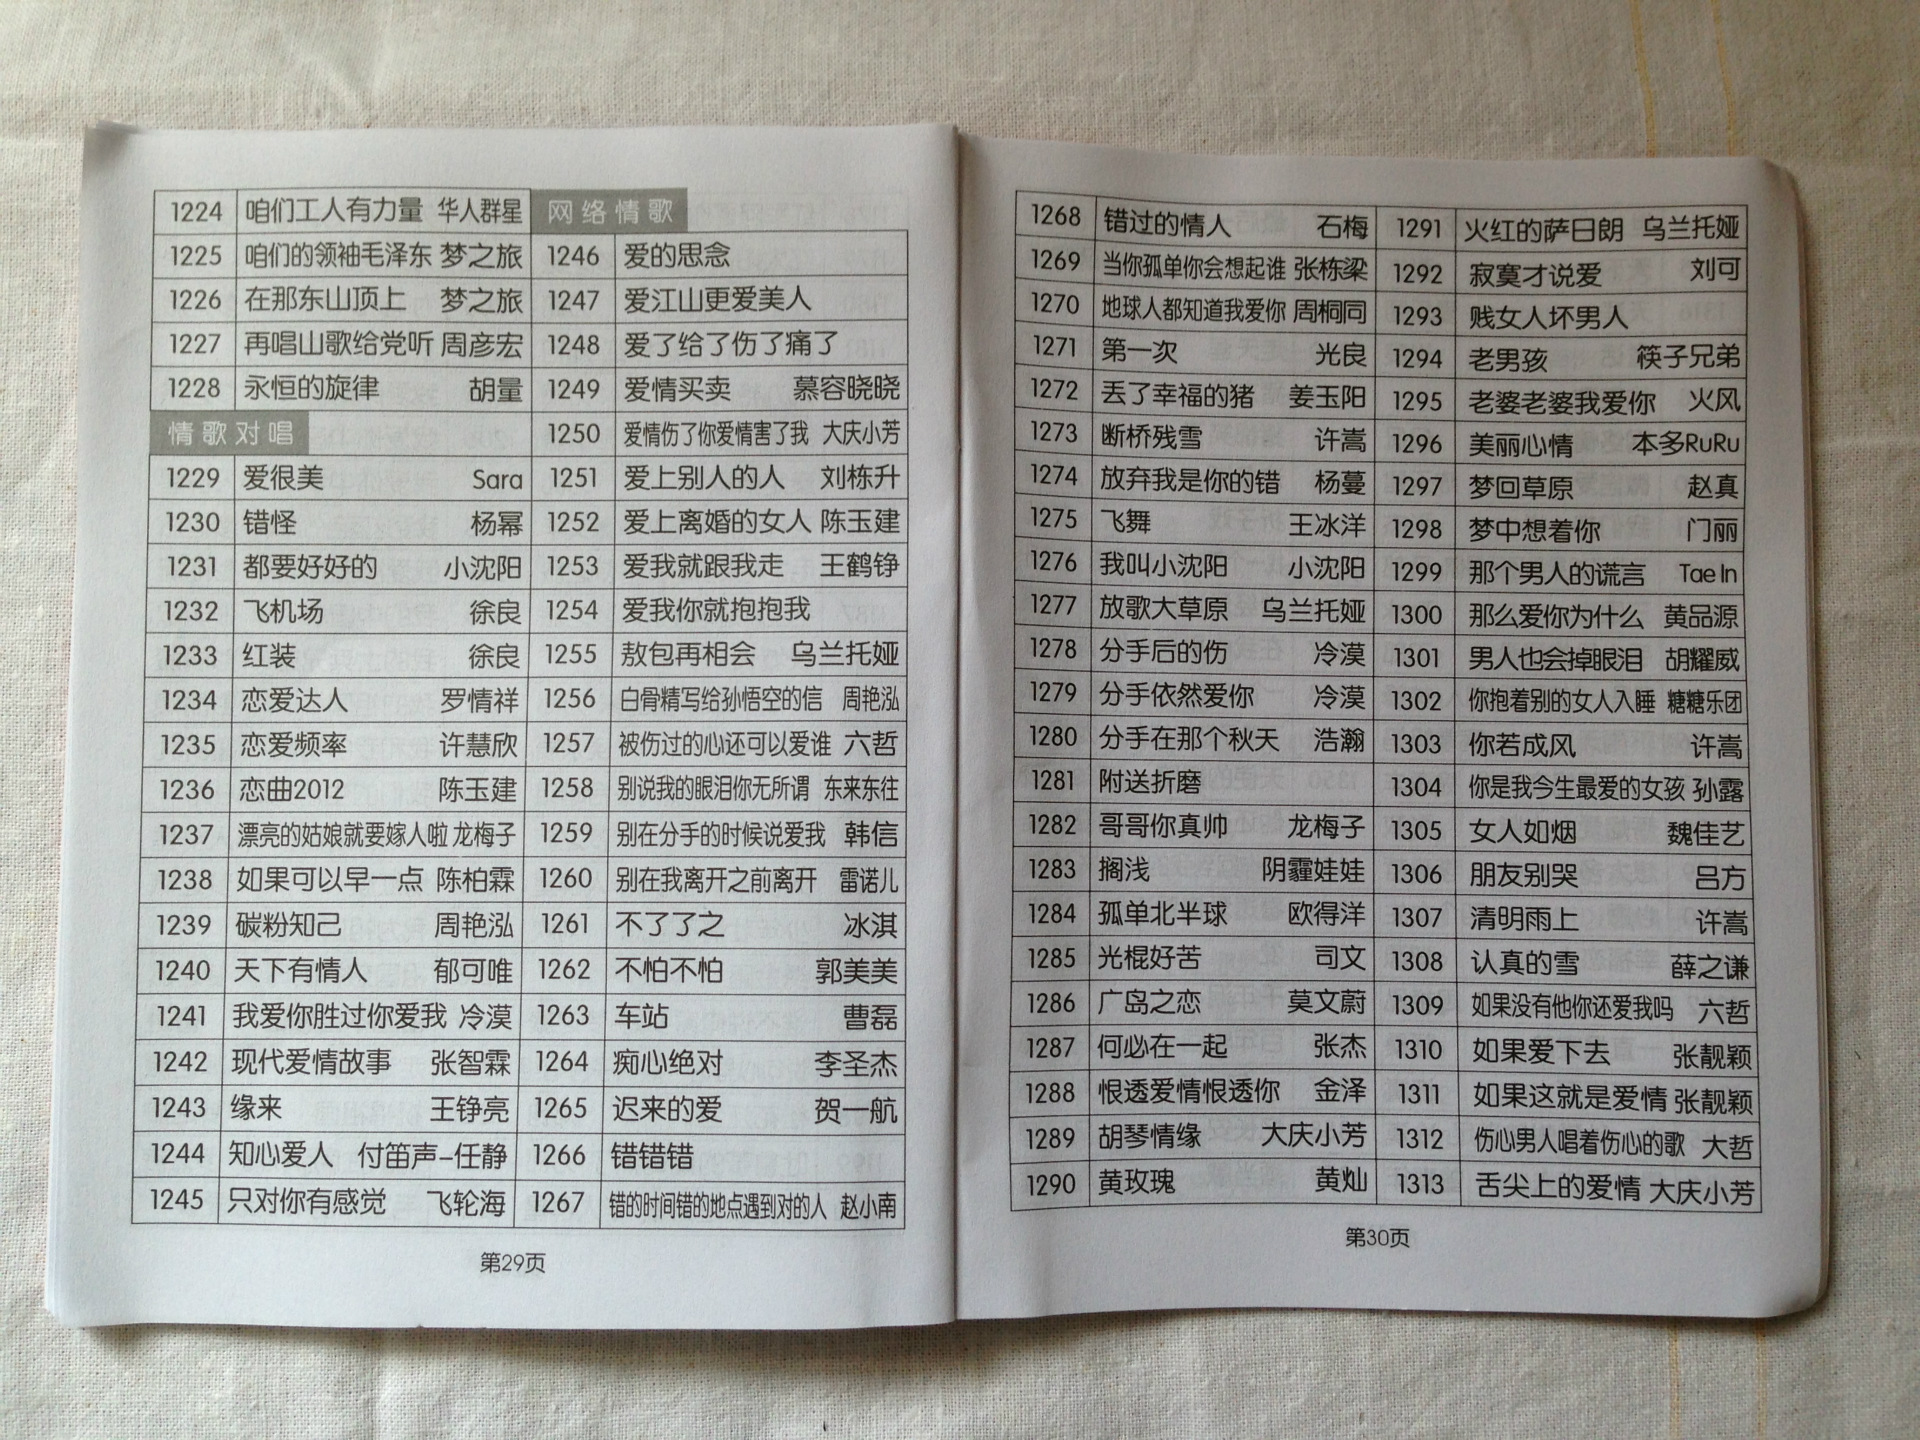 1224 咱们工人有力量 华人群星
1225 咱们的领袖毛泽东 梦之旅
1226 在那东山顶上 梦之旅
1227 再唱山歌给党听 周彦宏
1228 永恒的旋律 胡量
情歌对唱
1229 爱很美 Sara
1230 错怪 杨幂
1231 都要好好的 小沈阳
1232 飞机场 徐良
1233 红装 徐良
1234 恋爱达人 罗情祥
1235 恋爱频率 许慧欣
1236 恋曲2012 陈玉建
1237 漂亮的姑娘就要嫁人啦 龙梅子
1238 如果可以早一点 陈柏霖
1239 碳粉知己 周艳泓
1240 天下有情人 郁可唯
1241 我爱你胜过你爱我 冷漠
1242 现代爱情故事 张智霖
1243 缘来 王铮亮
1244 知心爱人 付笛声-任静
1245 只对你有感觉 飞轮海
网络情歌
1246 爱的思念
1247 爱江山更爱美人
1248 爱了给了伤了痛了
1249 爱情买卖 慕容晓晓
1250 爱情伤了你爱情害了我 大庆小芳
1251 爱上别人的人 刘栋升
1252 爱上离婚的女人 陈玉建
1253 爱我就跟我走 王鹤铮
1254 爱我你就抱抱我
1255 敖包再相会 乌兰托娅
1256 白骨精写给孙悟空的信 周艳泓
1257 被伤过的心还可以爱谁 六哲
1258 别说我的眼泪你无所谓 东来东往
1259 别在分手的时候说爱我 韩信
1260 别在我离开之前离开 雷诺儿
1261 不了了之 冰淇
1262 不怕不怕 郭美美
1263 车站 曹磊
1264 痴心绝对 李圣杰
1265 迟来的爱 贺一航
1266 错错错
1267 错的时间错的地点遇到对的人 赵小南
第29页
1268 错过的情人 石梅
1269 当你孤单你会想起谁 张栋梁
1270 地球人都知道我爱你 周桐同
1271 第一次 光良
1272 丢了幸福的猪 姜玉阳
1273 断桥残雪 许嵩
1274 放弃我是你的错 杨蔓
1275 飞舞 王冰洋
1276 我叫小沈阳 小沈阳
1277 放歌大草原 乌兰托娅
1278 分手后的伤 冷漠
1279 分手依然爱你 冷漠
1280 分手在那个秋天 浩瀚
1281 附送折磨
1282 哥哥你真帅 龙梅子
1283 搁浅 阴霾娃娃
1284 孤单北半球 欧得洋
1285 光棍好苦 司文
1286 广岛之恋 莫文蔚
1287 何必在一起 张杰
1288 恨透爱情恨透你 金泽
1289 胡琴情缘 大庆小芳
1290 黄玫瑰 黄灿
1291 火红的萨日朗 乌兰托娅
1292 寂寞才说爱 刘可
1293 贱女人坏男人
1294 老男孩 筷子兄弟
1295 老婆老婆我爱你 火风
1296 美丽心情 本多RuRu
1297 梦回草原 赵真
1298 梦中想着你 门丽
1299 那个男人的谎言 Tae In
1300 那么爱你为什么 黄品源
1301 男人也会掉眼泪 胡耀威
1302 你抱着别的女人入睡 糖糖乐团
1303 你若成风 许嵩
1304 你是我今生最爱的女孩 孙露
1305 女人如烟 魏佳艺
1306 朋友别哭 吕方
1307 清明雨上 许嵩
1308 认真的雪 薛之谦
1309 如果没有他你还爱我吗 六哲
1310 如果爱下去 张靓颖
1311 如果这就是爱情 张靓颖
1312 伤心男人唱着伤心的歌 大哲
1313 舌尖上的爱情 大庆小芳
第30页